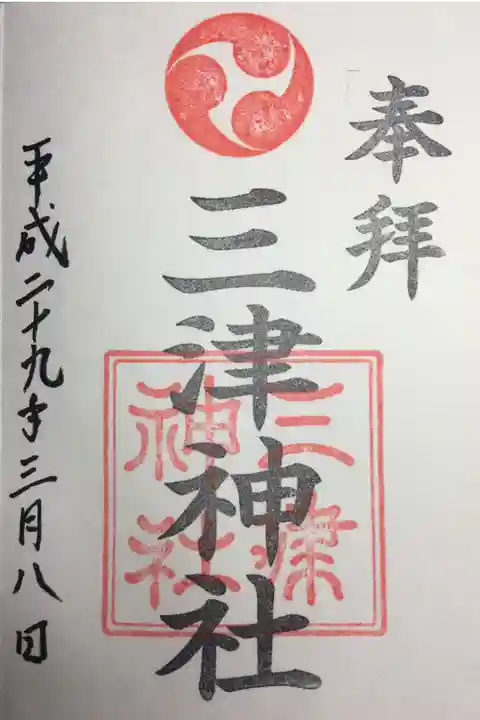 奉拝
三津神社
三津
神社
平成二十九年三月八日